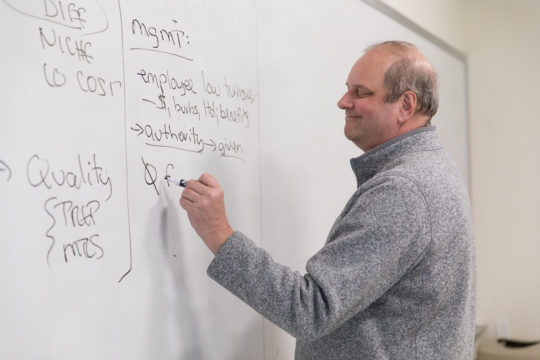 DIFF
NICHE
LO COST
→ Quality
{ PREP
MTLS
mgmt:
employee low turnover
→ $, bonus, Hol, benefits
→ authority → given
Ø f